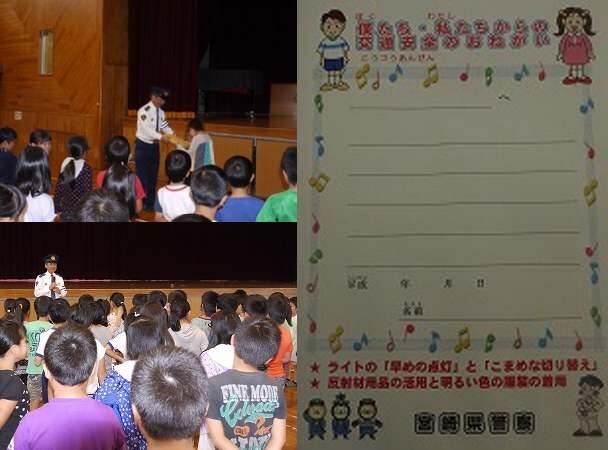 僕たち・私たちからの
交通安全のおねがい
こうつうあんぜん
へ
平成　年　月　日
名前
★ ライトの「早めの点灯」と「こまめな切り替え」
★ 反射材用品の活用と明るい色の服装の着用
宮崎県警察
FINE MODE
Colorado